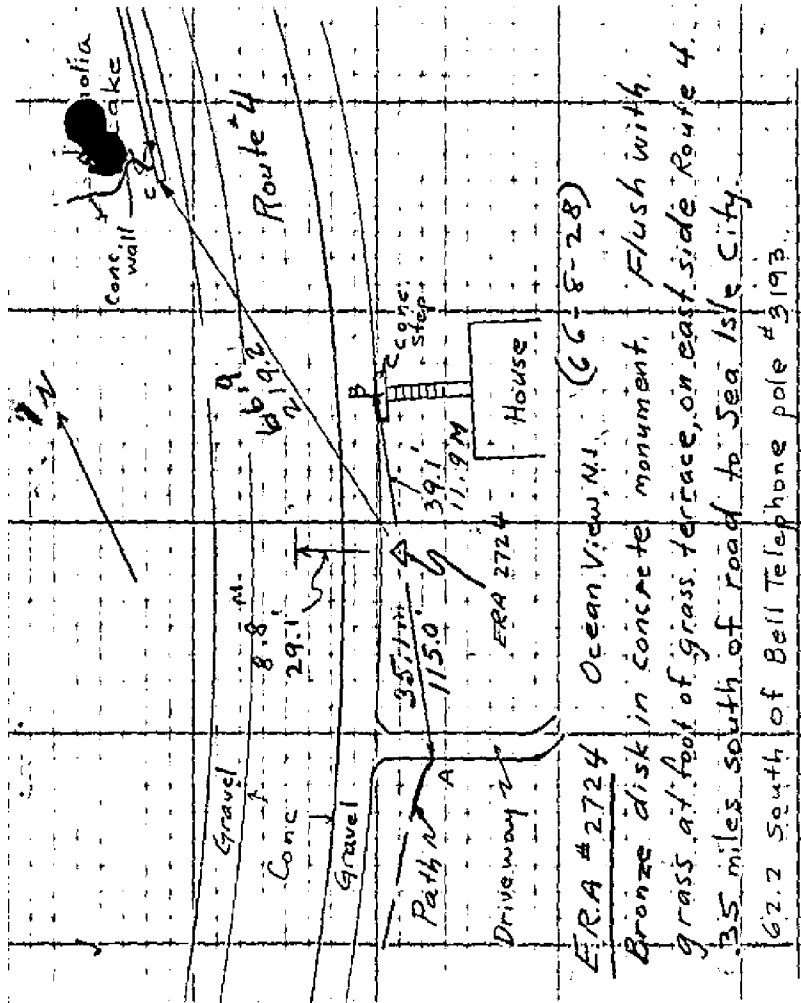 olia
ake
Conc.
wall
C
N
Route #4
66.9
219.2
B
Conc.
Step
House
8.8 M.
29.1'
39.1'
11.9 M
35.1 m
115.0'
ERA 2724
Gravel
Conc
Gravel
Path
A
Driveway
ERA #2724 Ocean View, N.J. (66-8-28)
Bronze disk in concrete monument. Flush with
grass at foot of grass terrace, on east side Route 4.
.35 miles south of road to Sea Isle City.
62.2 South of Bell Telephone pole #3193